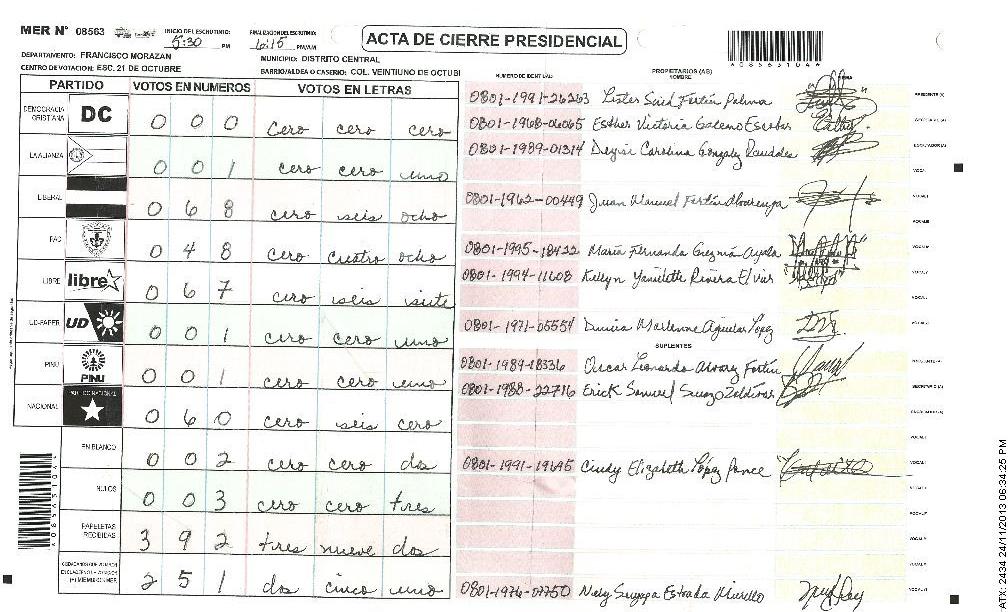 MER Nº 08563
INICIO DEL ESCRUTINIO: 5:30 PM
FINALIZACION DEL ESCRUTINIO: 6:15 PM/AM
ACTA DE CIERRE PRESIDENCIAL
DEPARTAMENTO: FRANCISCO MORAZAN
MUNICIPIO: DISTRITO CENTRAL
CENTRO DE VOTACION: ESC. 21 DE OCTUBRE
BARRIO/ALDEA O CASERIO: COL. VEINTIUNO DE OCTUBI
PARTIDO VOTOS EN NUMEROS VOTOS EN LETRAS
DEMOCRACIA CRISTIANA DC 0 0 0 cero cero cero
LA ALIANZA 0 0 1 cero cero uno
LIBERAL 0 6 8 cero seis ocho
PAC 0 4 8 cero cuatro ocho
LIBRE libre 0 6 7 cero seis siete
UD-FAPER UD 0 0 1 cero cero uno
PINU PINU 0 0 1 cero cero uno
NACIONAL PARTIDO NACIONAL 0 6 0 cero seis cero
EN BLANCO 0 0 2 cero cero dos
NULOS 0 0 3 cero cero tres
PAPELETAS RECIBIDAS 3 9 2 tres nueve dos
2 5 1 dos cinco uno
NUMERO DE IDENTIDAD
PROPIETARIOS (AS)
NOMBRE
0801-1991-26263 Lister Said Fortin Palma
0801-1968-06065 Esther Victoria Galeno Escobar
0801-1989-01314 Deysi Carolina Gonzalez
0801-1962-00449 Juan Manuel Fortin Alvarenga
0801-1995-18422 Maria Fernanda Guzmán Ayala
0801-1994-11608 Kelyn Yamileth Rivera Elvir
0801-1971-05554 Marlenne Aguilar Lopez
SUPLENTES
0801-1989-18336 Oscar Leonardo Fortin
0801-1988-22716 Erick Samuel Suazo Zeldivar
0801-1991-19695 Cindy Elizabeth López Ponce
0801-1976-07750 Nely Suyapa Estrada Murillo
24/11/2013 06:34:25 PM